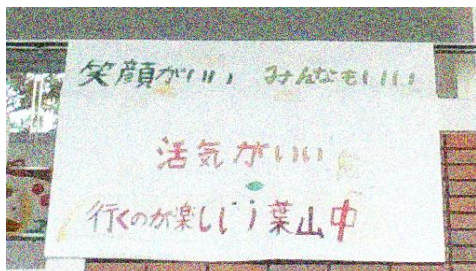 笑顔がいい みんなもいい
活気がいい
行くのが楽しい葉山中